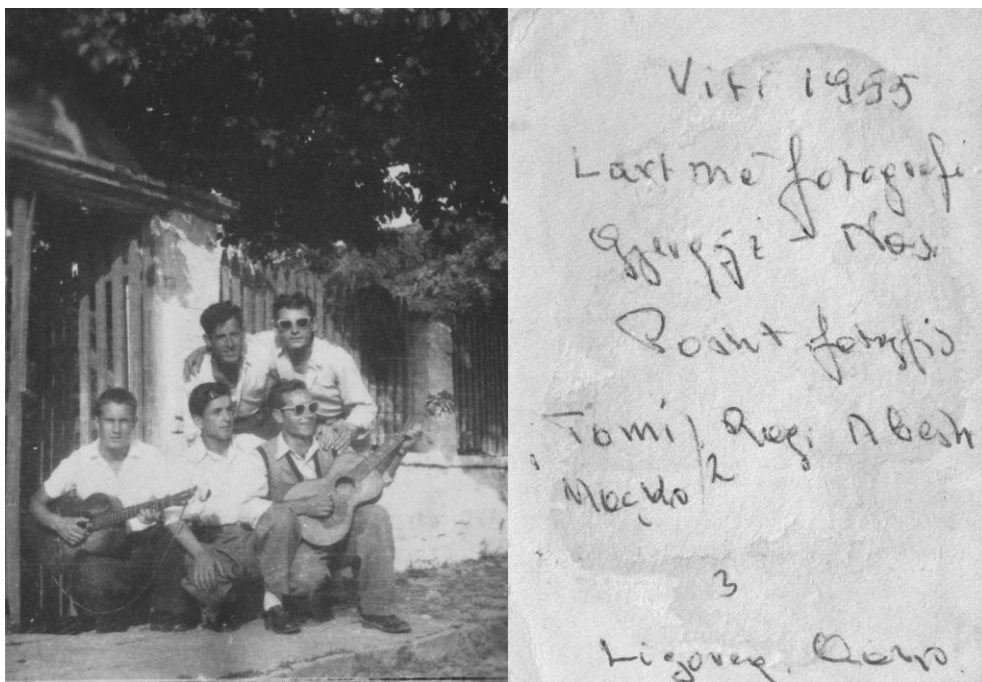 Viti 1955
Lart më fotografi
Gjergji - Naş
Posht fotografis
Tomi Ragi
Maçko 2
3
Ligoreq.